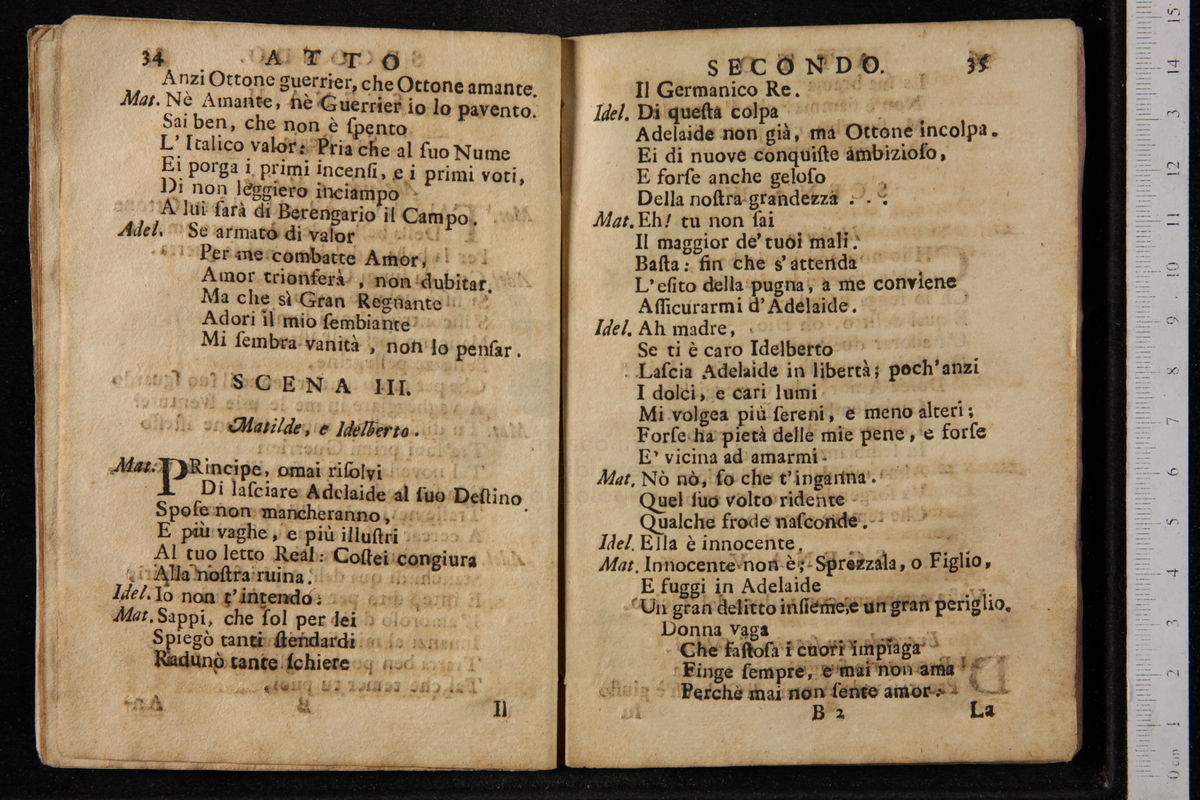 34 ATTO
Anzi Ottone guerrier, che Ottone amante.
Mat. Nè Amante, nè Guerrier io lo pavento.
Sai ben, che non è ſpento
L' Italico valor: Pria che al ſuo Nume
Ei porga i primi incenſi, e i primi voti,
Di non leggiero inciampo
A lui ſarà di Berengario il Campo.
Adel. Se armato di valor
Per me combatte Amor,
Amor trionferà, non dubitar.
Ma che sì Gran Regnante
Adori il mio ſembiante
Mi ſembra vanità, non lo penſar.
SCENA III.
Matilde, e Idelberto.
Mat. PRincipe, omai riſolvi
Di laſciare Adelaide al ſuo Deſtino
Spoſe non mancheranno,
E più vaghe, e più illuſtri
Al tuo letto Real: Coſtei congiura
Alla noſtra ruina.
Idel. Io non t'intendo.
Mat. Sappi, che ſol per lei
Spiegò tanti ſtendardi
Radunò tante ſchiere
Il
SECONDO. 35
Il Germanico Re.
Idel. Di queſta colpa
Adelaide non già, ma Ottone incolpa.
Ei di nuove conquiſte ambizioſo,
E forſe anche geloſo
Della noſtra grandezza . . .
Mat. Eh! tu non ſai
Il maggior de' tuoi mali.
Baſta: fin che s'attenda
L'eſito della pugna, a me conviene
Aſſicurarmi d'Adelaide.
Idel. Ah madre,
Se ti è caro Idelberto
Laſcia Adelaide in libertà; poch'anzi
I dolci, e cari lumi
Mi volgea più ſereni, e meno alteri;
Forſe ha pietà delle mie pene, e forſe
E' vicina ad amarmi.
Mat. Nò nò, ſo che t'inganna.
Quel ſuo volto ridente
Qualche frode naſconde.
Idel. Ella è innocente.
Mat. Innocente non è; Sprezzala, o Figlio,
E fuggi in Adelaide
Un gran delitto inſieme, e un gran periglio.
Donna vaga
Che faſtoſa i cuori impiaga
Finge ſempre, e mai non ama
Perchè mai non ſente amor.
B 2 La
0 cm 1 2 3 4 5 6 7 8 9 10 11 12 13 14 15